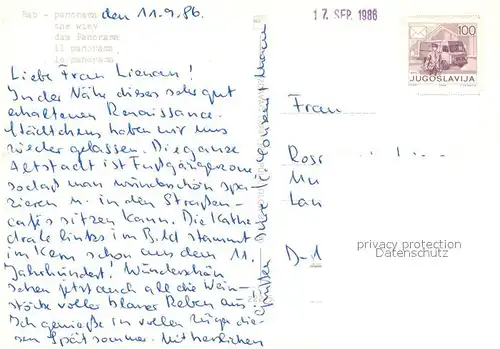 Rab - panorama
the wiev
das Panorama
il panorama
le panorama
den 11.9.86.
Liebe Frau Lieman!
In der Nähe dieses sehr gut
erhaltenen Renaissance-
städtchens haben wir uns
nieder gelassen. Die ganze
Altstadt ist Fußgängerzone
sodaß man wunderschön spa-
zieren u. in den Straßen-
cafés sitzen kann. Die Kathe
drale links im Bild stammt
im Kern schon aus dem 11.
Jahrhundert! Wunderschön
sehen jetzt auch all die Wein-
stöcke voller blauer Reben aus!
Ich genieße in vollen Zügen die-
sen Spätsommer. Mit herzlichen
Grüßen Ihre
17 SEP. 1986
100
JUGOSLAVIJA
Frau
Ros
Mu
Lan
D-1
privacy protection
Datenschutz